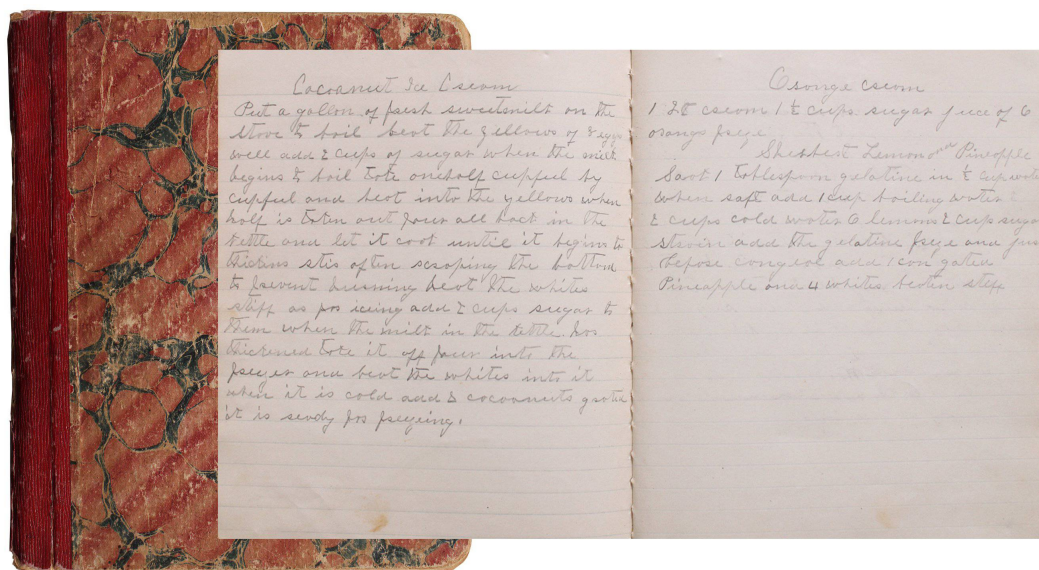 Cocoanut Ice Cream
Put a gallon of fresh sweetmilk on the
stove to boil beat the yellows of 8 eggs
well add 2 cups of sugar when the milk
begins to boil take onehalf cupful by
cupful and beat into the yellows when
half is taken out pour all back in the
kettle and let it cook until it begins to
thicken stir often scraping the bottom
to prevent burning beat the whites
stiff as for iceing add 2 cups sugar to
them when the milk in the kettle has
thickened take it off pour into the
freezer and beat the whites into it
when it is cold add 2 cocoanuts grated
it is ready for freezeing.
Orange cream
1 Qt cream 1 ½ cups sugar juce of 6
orangs freze
Sherbert Lemon and Pineapple
Soak 1 tablespoon gelatine in ½ cup
when soft add 1 cup boiling water
2 cups cold water 6 lemons 2 cup
strain add the gelatine freze and
before congeal add 1 can gated
Pineapple and 4 whites beaten stiff